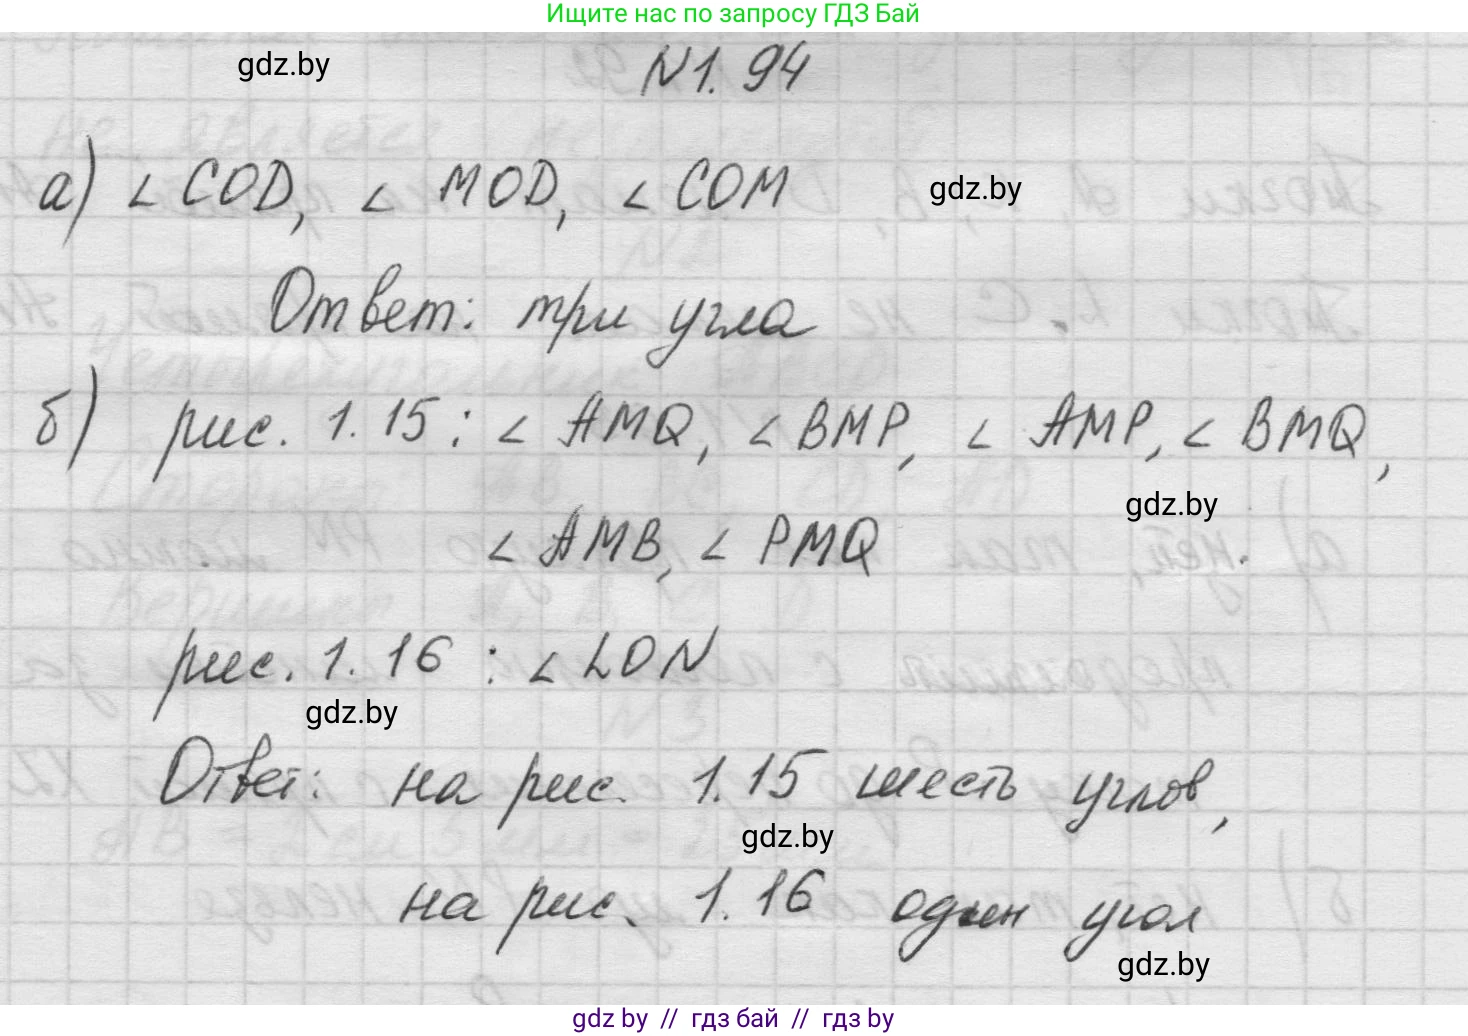 Ищите нас по запросу ГДЗ Бай
gdz.by
N1.94
а) ∠ COD, ∠ MOD, ∠ COM
gdz.by
Ответ: три угла
б) рис. 1.15: ∠ AMQ, ∠ BMP, ∠ AMP, ∠ BMQ,
gdz.by
∠ AMB, ∠ PMQ
рис. 1.16 : ∠ LON
gdz.by
Ответ: на рис. 1.15 шесть углов,
gdz.by
на рис. 1.16 один угол
gdz.by
gdz by // гдз бай // гдз by